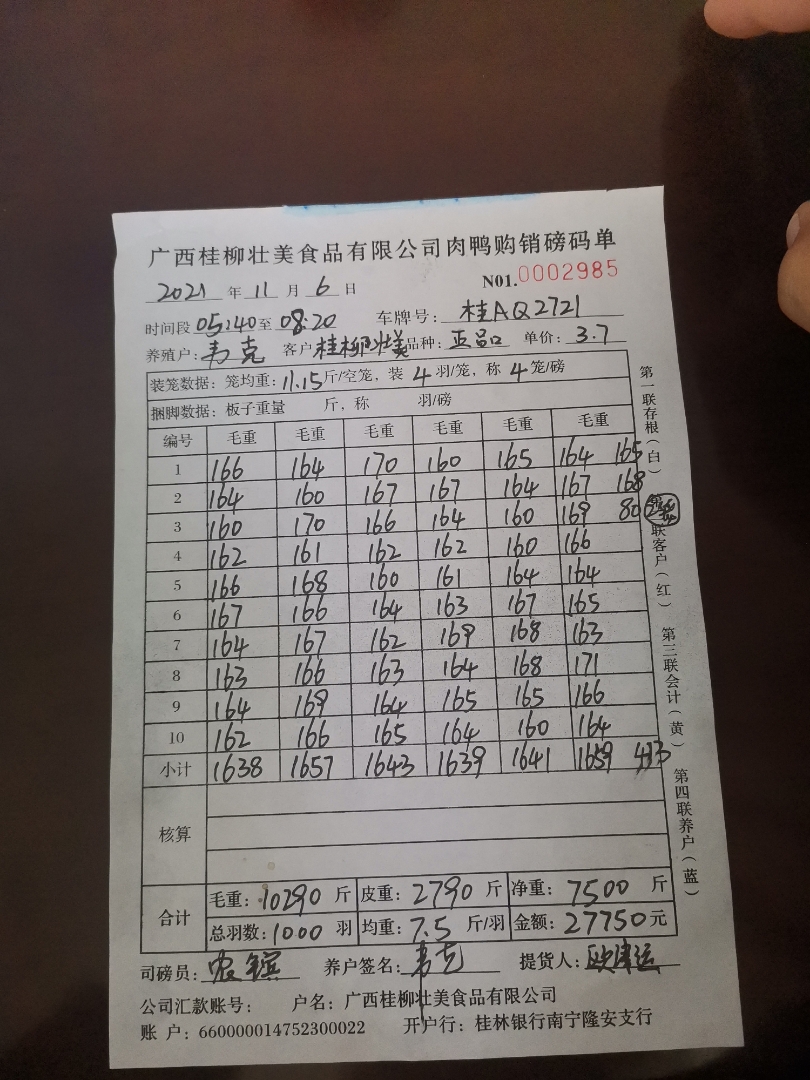 广西桂柳壮美食品有限公司肉鸭购销磅码单
2021 年 11 月 6 日 N01.0002985
时间段 05:40 至 08:20 车牌号: 桂AQ2721
养殖户: 韦克 客户 桂柳壮美 品种: 正品 单价: 3.7
装笼数据: 笼均重: 11.15 斤/空笼, 装 4 羽/笼, 称 4 笼/磅
捆脚数据: 板子重量 斤, 称 羽/磅
编号 毛重 毛重 毛重 毛重 毛重 毛重
1 166 164 170 160 165 164 165
2 164 160 167 167 164 167 168
3 160 170 166 164 160 169 80
4 162 161 162 162 160 166
5 166 168 160 161 164 164
6 167 166 164 163 167 165
7 164 167 162 169 168 163
8 163 166 163 164 168 171
9 164 169 164 165 165 166
10 162 166 165 164 160 164
小计 1638 1657 1643 1639 1641 1659 413
核算
合计 毛重: 10290 斤 皮重: 2790 斤 净重: 7500 斤
总羽数: 1000 羽 均重: 7.5 斤/羽 金额: 27750 元
司磅员: 养户签名: 韦克 提货人:
公司汇款账号: 户名: 广西桂柳壮美食品有限公司
账 户: 660000014752300022 开户行: 桂林银行南宁隆安支行
第一联存根(白)
联客户(红)
第三联会计(黄)
第四联养户(蓝)